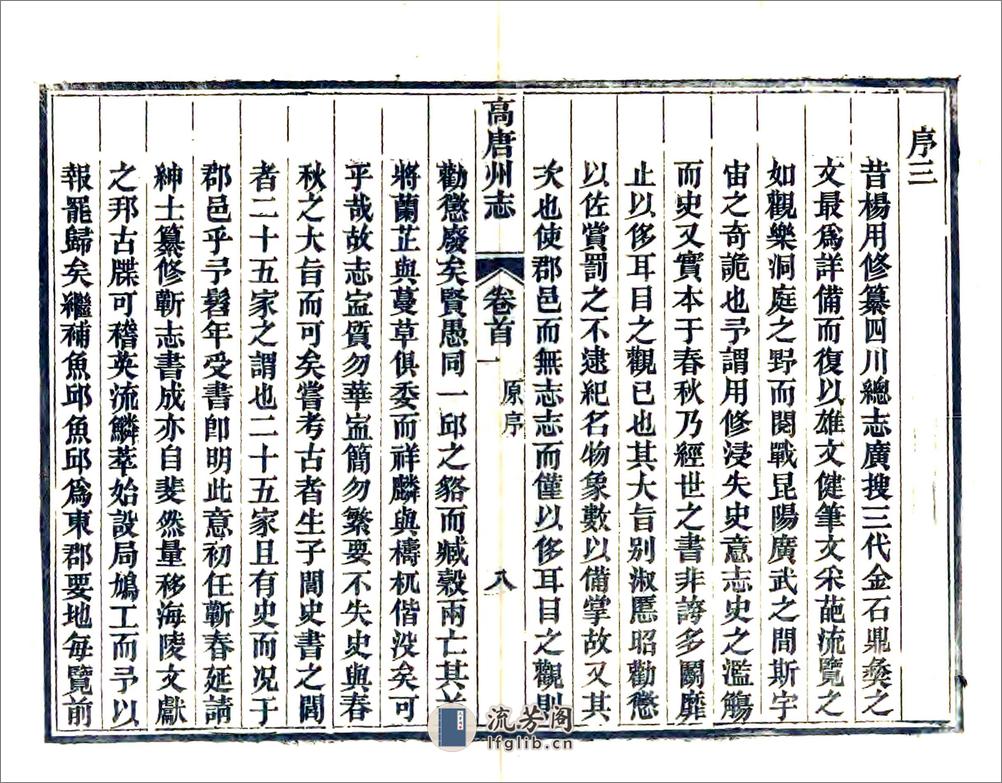 序三
昔楊用修纂四川總志廣搜三代金石鼎彝之
文最爲詳備而復以雄文健筆文采葩流覽之
如觀樂洞庭之野而閱戰昆陽廣武之間斯宇
宙之奇詭也予謂用修浸失史意志史之濫觴
而史又實本于春秋乃經世之書非誇多鬭靡
止以侈耳目之觀已也其大旨别淑慝昭勸懲
以佐賞罰之不逮紀名物象數以備掌故又其
次也使郡邑而無志志而僅以侈耳目之觀則
高唐州志
卷首一
原序
八
勸懲廢矣賢愚同一邱之貉而臧穀兩亡其
將蘭芷與蔓草俱委而祥麟與檮杌偕没矣可
乎哉故志宜質勿華宜簡勿繁要不失史與春
秋之大旨而可矣嘗考古者生子閭史書之閭
者二十五家之謂也二十五家且有史而况于
郡邑乎予髫年受書卽明此意初任蘄春延請
紳士纂修蘄志書成亦自斐然量移海陵文獻
之邦古牒可稽英流鱗萃始設局鳩工而予以
報罷歸矣繼補魚邱魚邱爲東郡要地每覽前
流芳阁
lfglib.cn